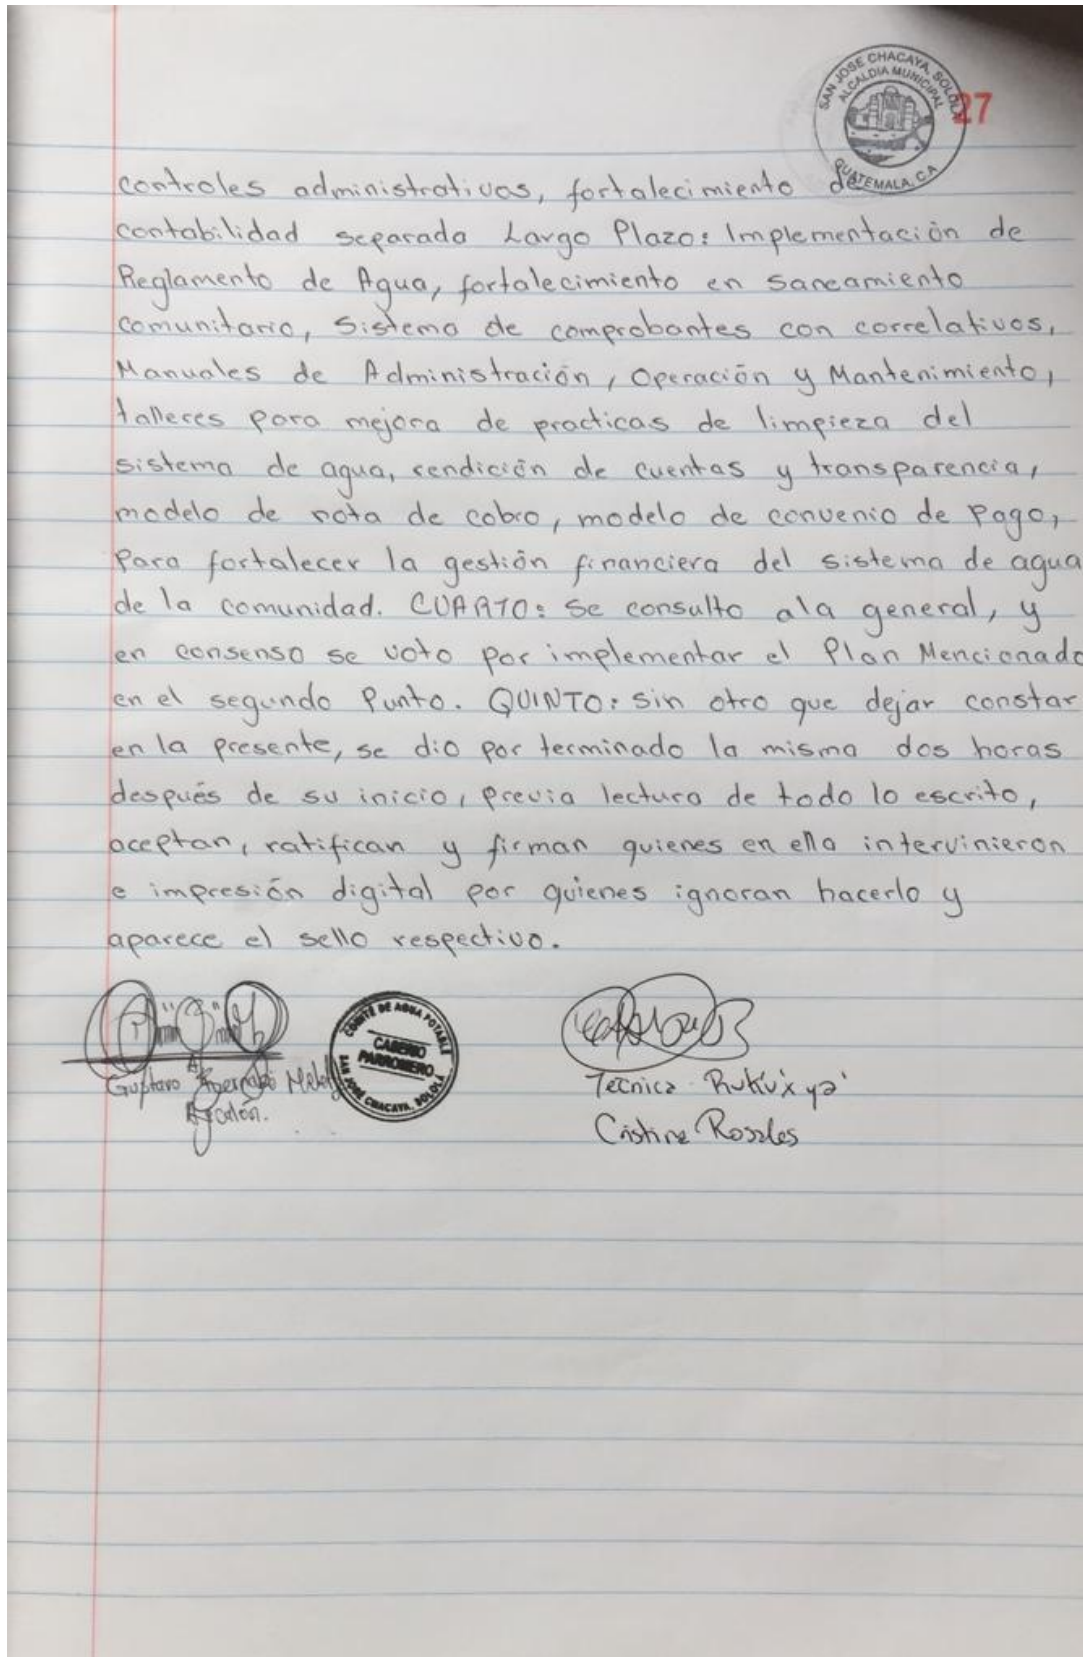 SAN JOSE CHACAYA, SOLOLA
ALCALDIA MUNICIPAL
GUATEMALA, C.A
27
controles administrativos, fortalecimiento de
contabilidad separada Largo Plazo: Implementación de
Reglamento de Agua, fortalecimiento en saneamiento
comunitario, Sistema de comprobantes con correlativos,
Manuales de Administración, Operación y Mantenimiento,
talleres para mejora de practicas de limpieza del
sistema de agua, rendición de cuentas y transparencia,
modelo de nota de cobro, modelo de convenio de Pago,
Para fortalecer la gestión financiera del sistema de agua
de la comunidad. CUARTO: Se consulto ala general, y
en consenso se voto por implementar el Plan Mencionado
en el segundo Punto. QUINTO: Sin otro que dejar constar
en la presente, se dio por terminado la misma dos horas
después de su inicio, previa lectura de todo lo escrito,
aceptan, ratifican y firman quienes en ella intervinieron
e impresión digital por quienes ignoran hacerlo y
aparece el sello respectivo.
COMITÉ DE AGUA POTABLE
CASERIO
PARROMERO
SAN JOSÉ CHACAYA, SOLOLÁ
Gustavo
Técnica Ruku'x ya'
Cristina Rosales